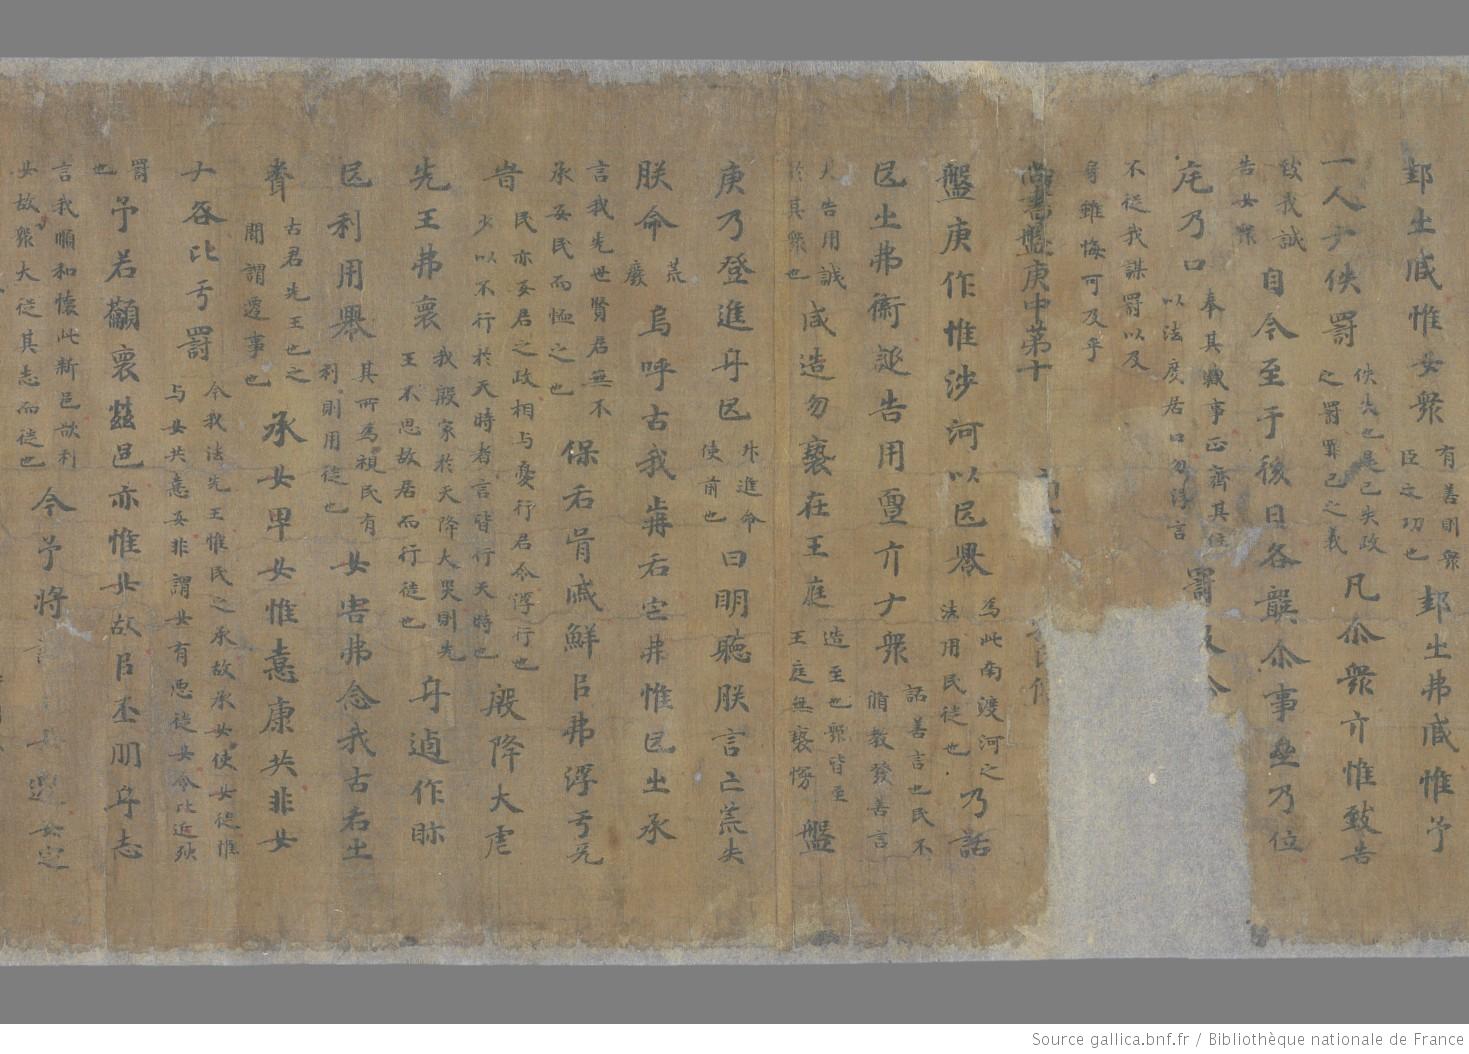 邦㞢臧惟女衆 有善則衆 臣之功也 邦㞢弗臧惟予
一人ナ佚罰 佚失也是己失政 之罰罪己之義 凡尒衆亓惟致告
致我誠 告女衆 自今至于後日各龔尒事 乃位
乃口 奉其職事正齊其位 以法度居口勿浮言 罰
不從我謀罰以及
身雖悔可及乎
尚書盤庚中第十
盤庚作惟涉河以民 為此南渡河之 法用民徙也 乃話
民㞢弗 誕告用亶亓ナ衆 話善言也民不 循教發善言
大告用誠 於其衆也 咸造勿褻在王庭 造至也衆皆至 王庭無褻慢 盤
庚乃登進身民 升進命 使前也 曰明聽朕言亡荒失
朕命 荒 廢 烏呼古我 后宅弗惟民㞢承
言我先世賢君無不 承安民而恤之也 保后胥戚鮮㠯弗浮亏
旹 民亦安君之政相与憂行君令浮行也 少以不行於天時者言皆行天時也 殷降大虐
先王弗褱 我殷家於天降大災則先 王不思故居而行徙也 身 作眎
民利用 其所為視民有 利則用徙也 女害弗念我古后㞢
古君先王也之 聞謂遷事也 承女卑女惟憙康共非女
ナ咎比亏罰 今我法先王惟民之承故承女使女徙惟 与女共憙安非謂女有惡徙女令比近殃
罰 也 予若籲褱茲邑亦惟女故㠯丕 身志
言我順和懷此新邑欲利 女故衆大從其志而徙也 今予將 女遷安定
Source gallica.bnf.fr / Bibliothèque nationale de France